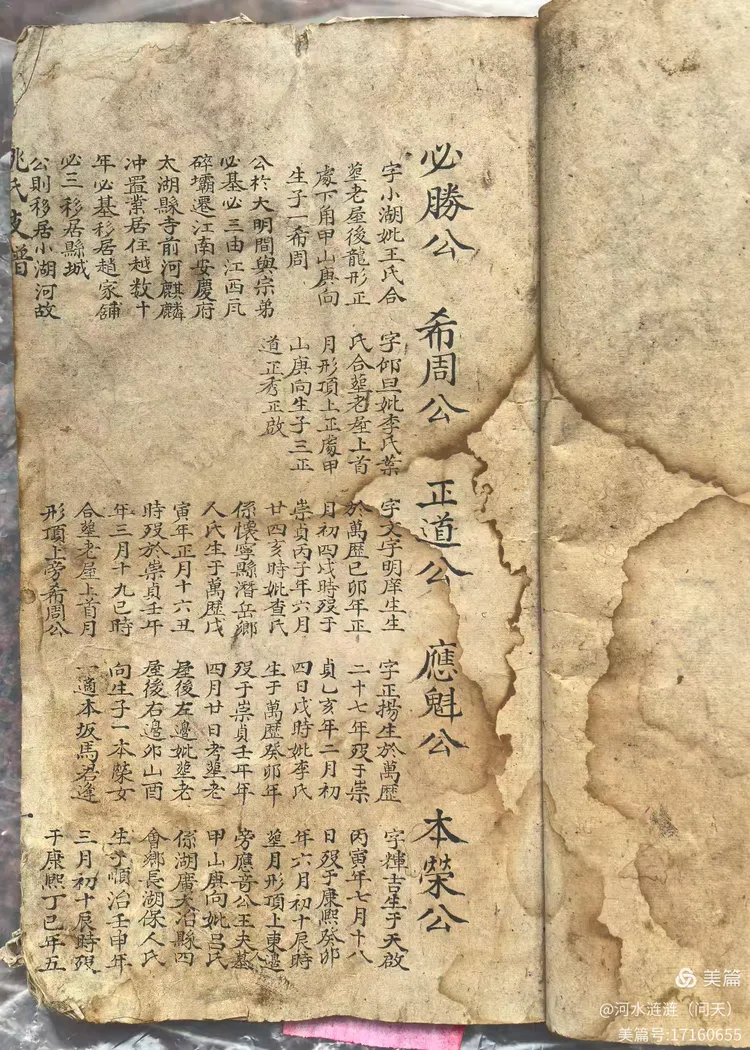 必勝公
字小湖妣王氏合
塟老屋後龍形正
處下角甲山庚向
生子一希周
公於大明間與宗弟
必基必三由江西瓦
碎壩遷江南安慶府
太湖縣寺前河麒麟
冲置業居住越数十
年必基移居趙家舖
必三移居縣城
公則移居小湖河故
希周公
字仰旦妣李氏葉
氏合塟老屋上首
月形頂上正處甲
山庚向生子三正
道正秀正啟
正道公
字文宇明庠生生
於萬歷已卯年正
月初四戌時歿于
崇貞丙子年六月
廿四亥時妣查氏
係懷寧縣潛岳鄉
人氏生于萬歷戊
寅年正月十六丑
時歿於崇貞壬午
年三月十九巳時
合塟老屋上首月
形頂上旁希周公
應魁公
字正揚生於萬歷
二十七年歿于崇
貞乙亥年二月初
四日戌時妣李氏
生于萬歷癸卯年
歿于崇貞壬午年
四月廿日考塟老
屋後左邊妣塟老
屋後右邊夘山酉
向生子一本榮女
一適本坂馬君逢
本榮公
字輝吉生于天啟
丙寅年七月十八
日歿于康熙癸卯
年六月初十辰時
塟月形頂上東邊
旁應奇公王夫人墓
甲山庚向妣呂氏
係湖廣大冶縣四
會鄉長湖保人氏
生于順治壬申年
三月初十辰時歿
于康熙丁巳年五
姚氏支譜
美篇
@河水涟涟（问天）
美篇号:17160655